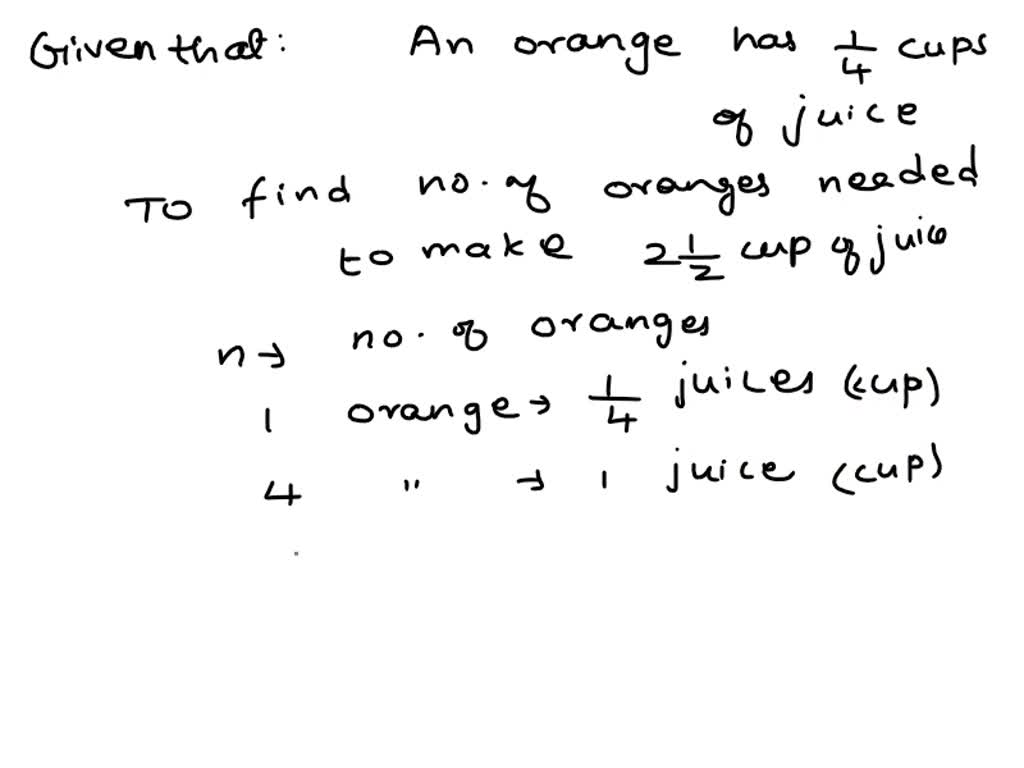 Given that: An orange has 1/4 cups
of juice
To find no. of oranges needed
to make 2 1/2 cup of juice
n → no. of oranges
1 orange → 1/4 juices (cup)
4 " → 1 juice (cup)